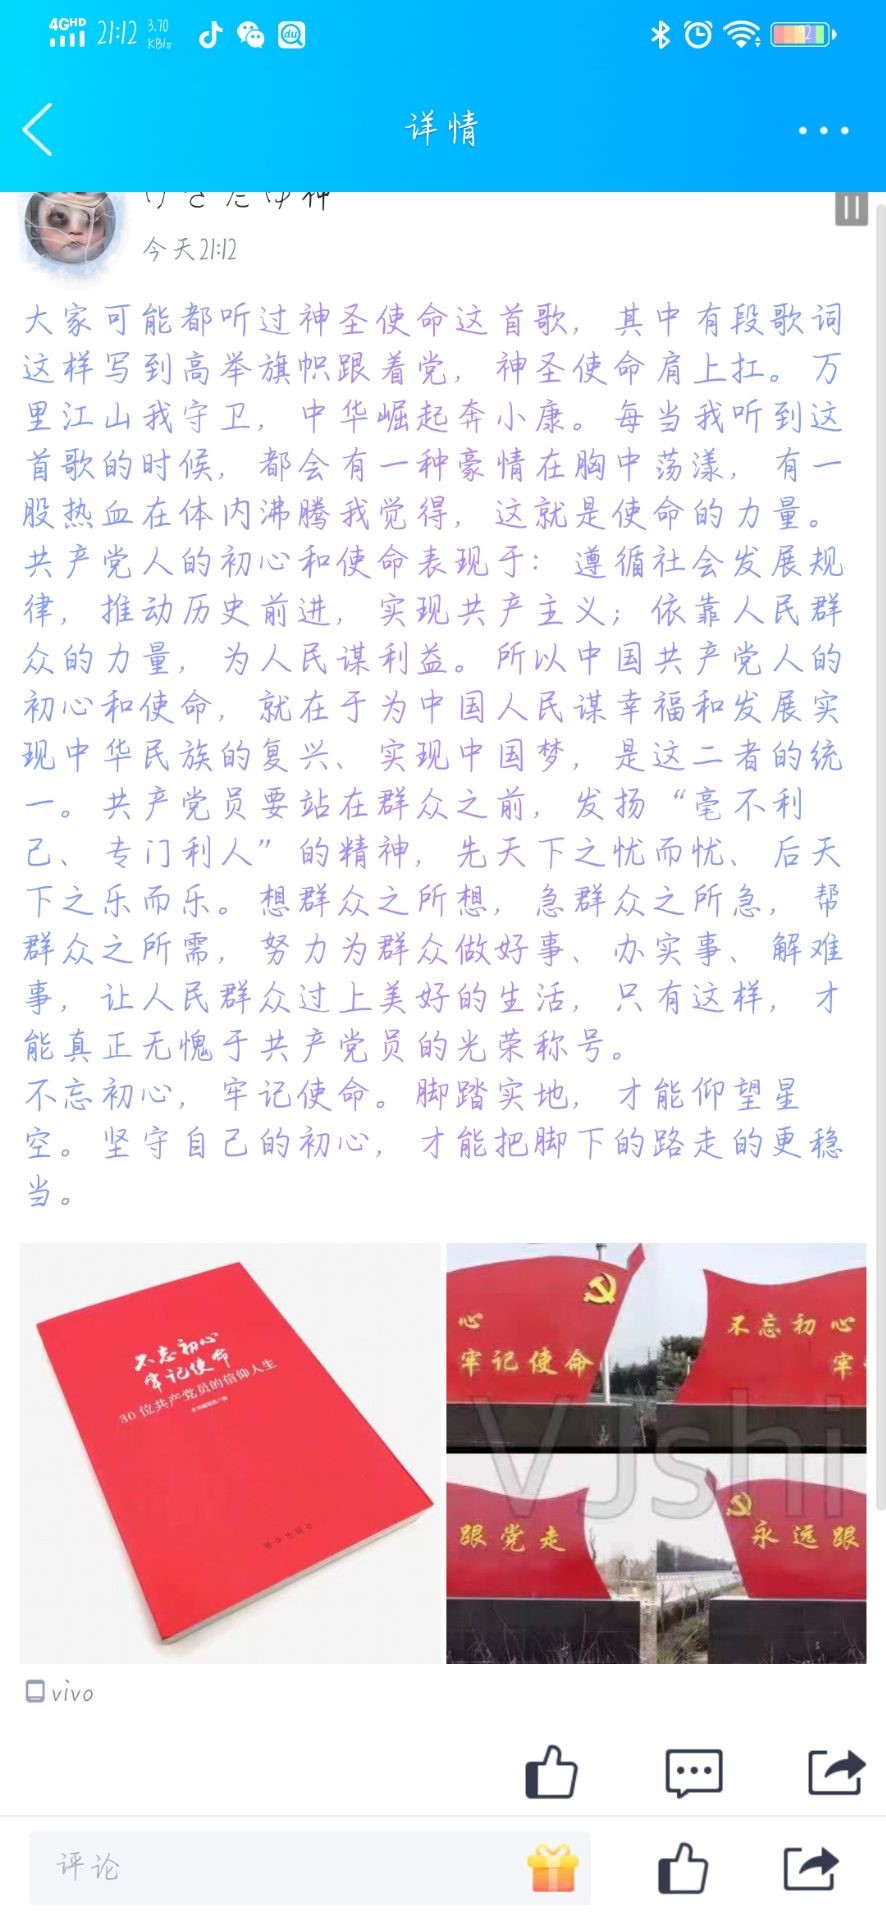 4GHD 21:12 3.70 KB/s
92
详情
今天21:12
大家可能都听过神圣使命这首歌，其中有段歌词
这样写到高举旗帜跟着党，神圣使命肩上扛。万
里江山我守卫，中华崛起奔小康。每当我听到这
首歌的时候，都会有一种豪情在胸中荡漾，有一
股热血在体内沸腾我觉得，这就是使命的力量。
共产党人的初心和使命表现于：遵循社会发展规
律，推动历史前进，实现共产主义；依靠人民群
众的力量，为人民谋利益。所以中国共产党人的
初心和使命，就在于为中国人民谋幸福和发展实
现中华民族的复兴、实现中国梦，是这二者的统
一。共产党员要站在群众之前，发扬“毫不利
己、专门利人”的精神，先天下之忧而忧、后天
下之乐而乐。想群众之所想，急群众之所急，帮
群众之所需，努力为群众做好事、办实事、解难
事，让人民群众过上美好的生活，只有这样，才
能真正无愧于共产党员的光荣称号。
不忘初心，牢记使命。脚踏实地，才能仰望星
空。坚守自己的初心，才能把脚下的路走的更稳
当。
不忘初心
牢记使命
30位共产党员的信仰人生
新华出版社
心
牢记使命
不忘初心
牢
跟党走
永远跟
VJshi
vivo
评论